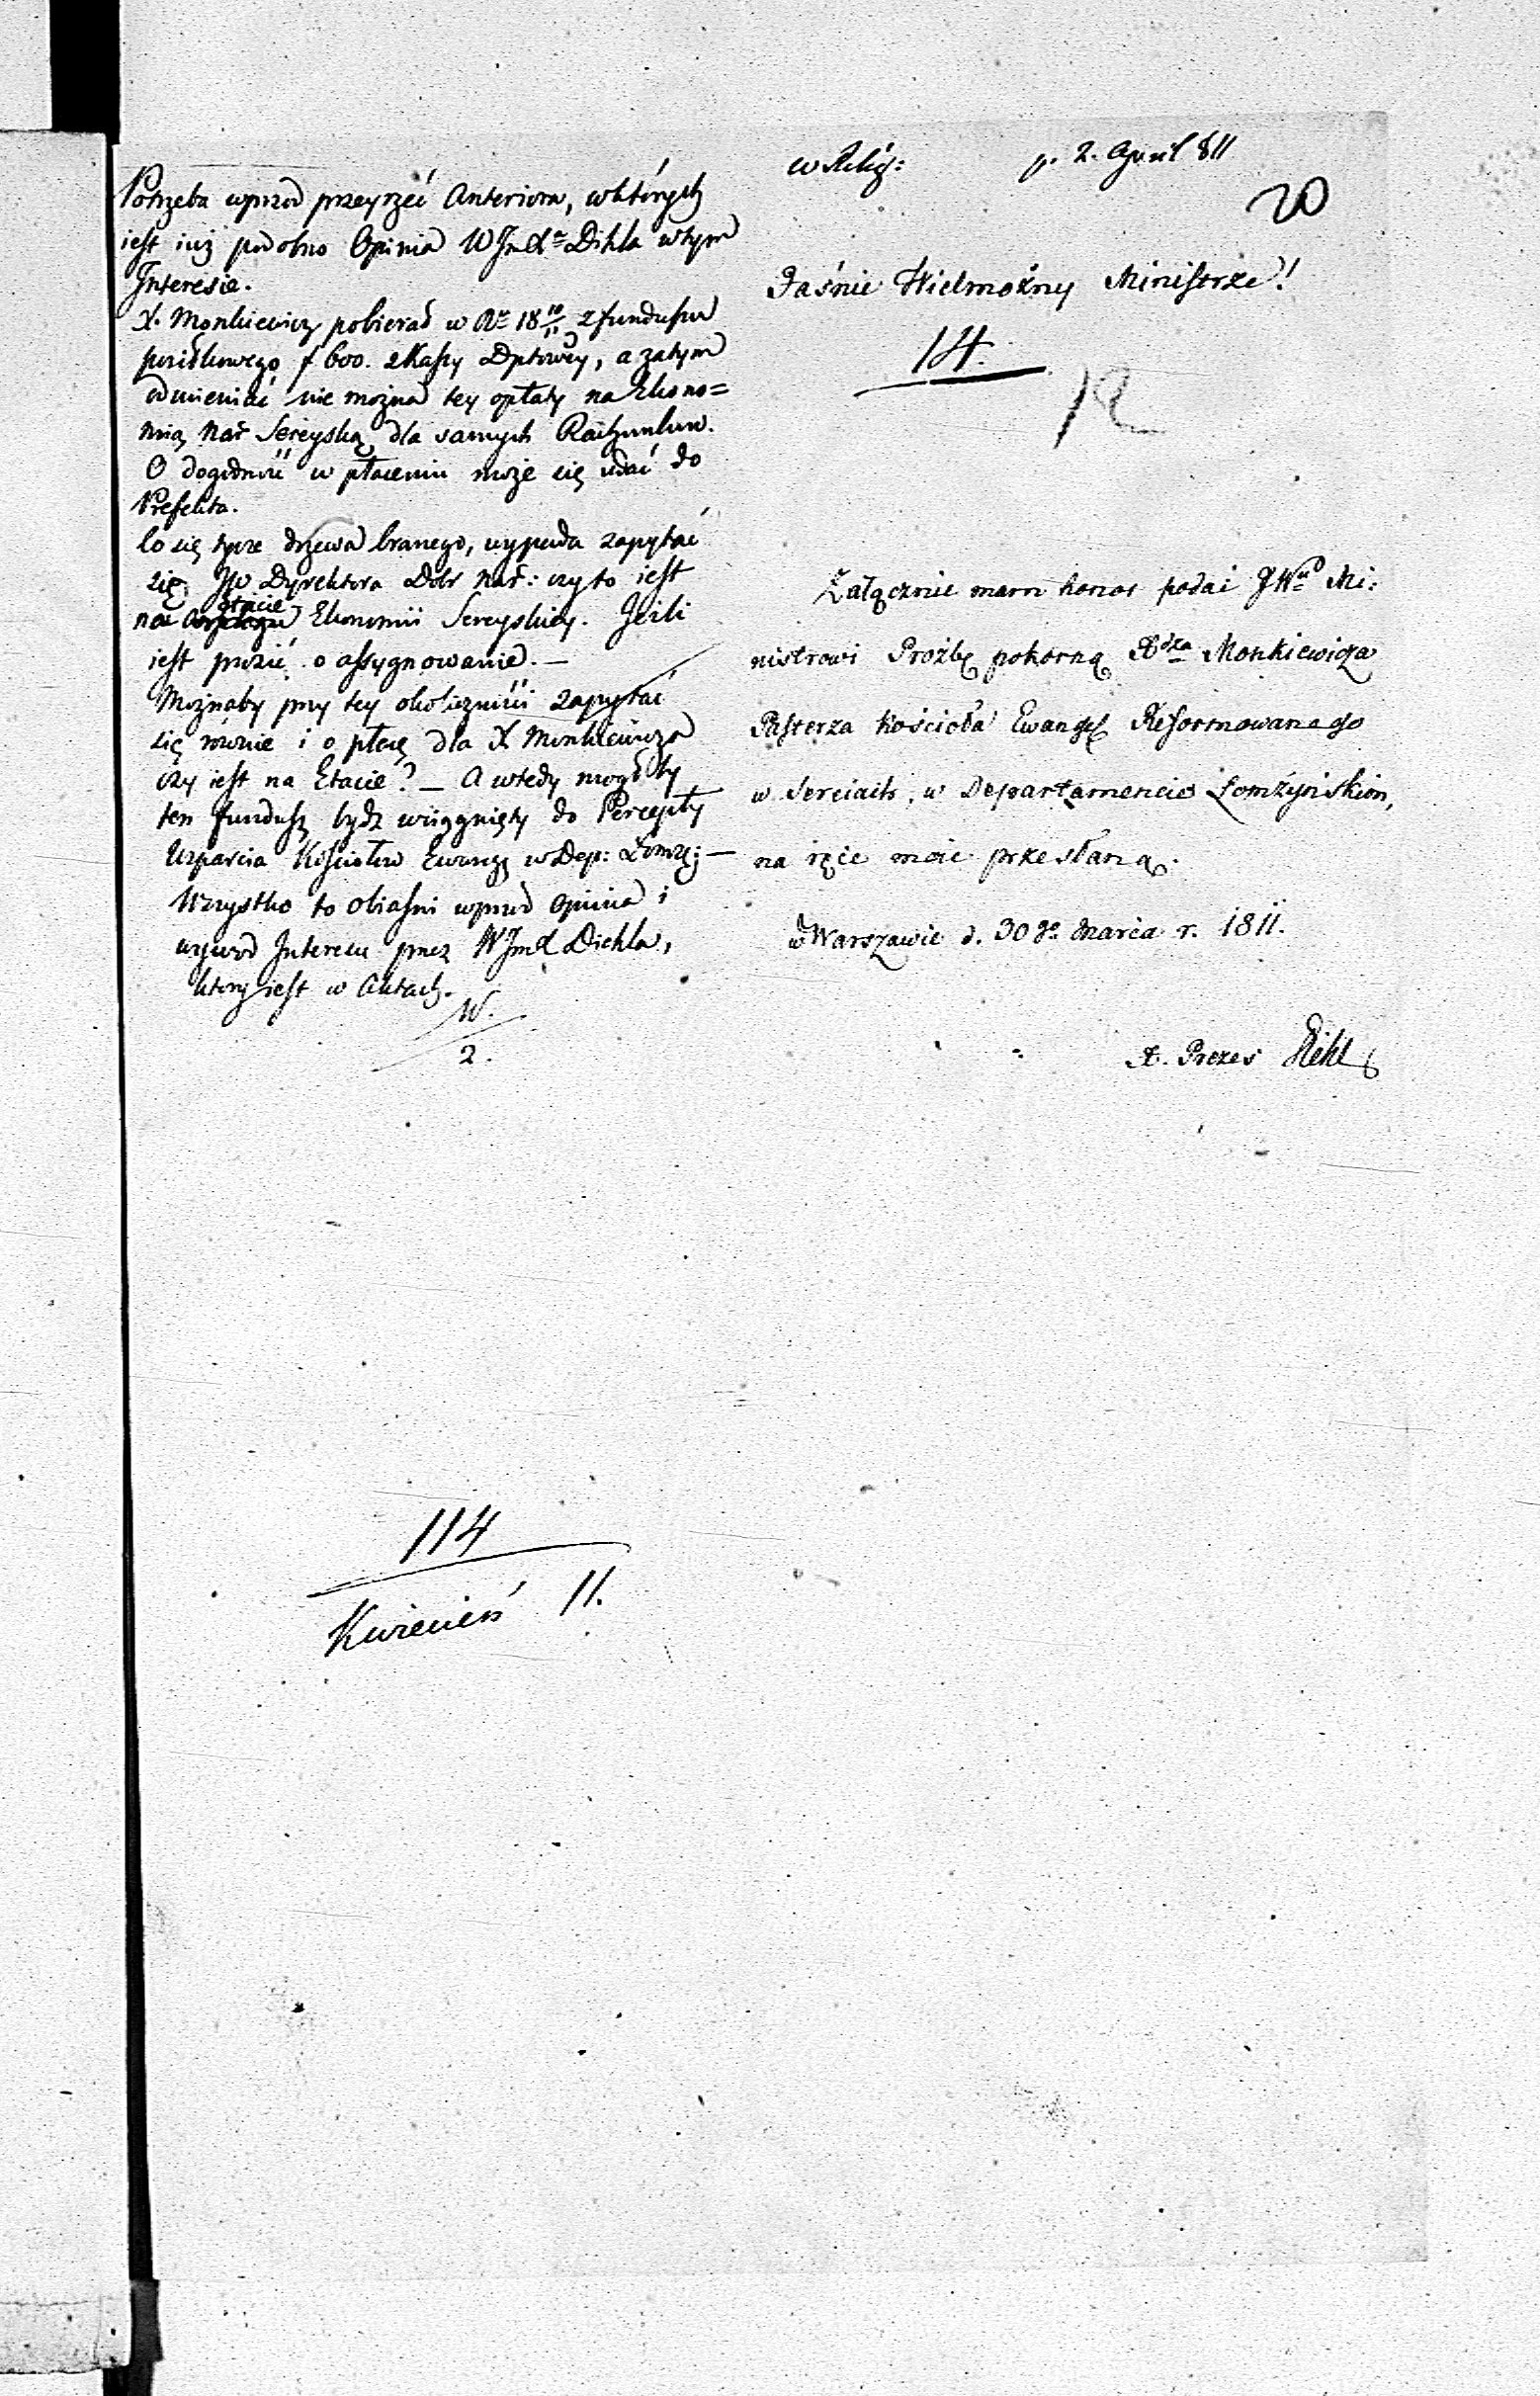 Potrzeba wprzod przeyrzeć Anteriora, w których
iest iuż podobno Opinia W Jm X<sup>a</sup> Dihla w tym
Interesie.
X. Monkiewicz pobierał w R<sup>u</sup> 18 10/11 z funduszu
posiłkowego f 600. z Kassy Dptowey, a zatym
odmieniać nie można tey opłaty na Ekono=
mią Nar Sereyską dla samych Rachunkow.
O dogodność w płaceniu może się udać do
Prefekta.
Co się tycze drzewa branego, wypada zapytać
się JW Dyrektora Dobr Nar: czy to iest
na Etacie Ekonomii Sereyskiey. Jeśli
iest prosić o assygnowanie. —
Możnaby przy tey okoliczności zapytać
się rownie i o płacę dla X Monkiewicza
czy iest na Etacie? — A wtedy mogłby
ten fundusz bydź wciągnięty do Percepty
Wsparcia Kościołow Ewang w Dep: Łomż: —
Wszystko to obiaśni wprzod Opinia i
wywod Interesu przez W Jm X Diehla,
ktory iest w Aktach.
W.
2.
114
Kwiecień 11.
w Relig: p. 2. April 811
20
Jaśnie Wielmożny Ministrze!
14.
Załącznie mam honor podać JW<sup>u</sup> Mi:
nistrowi Proźbę pokorną X<sup>dza</sup> Monkiewicza
Pasterza Kościoła Ewangel Reformowanego
w Sereiach, w Departamencie Łomżyńskim,
na ręce moie przesłaną.
w Warszawie d. 30 go Marca r. 1811.
X. Prezes Diehl